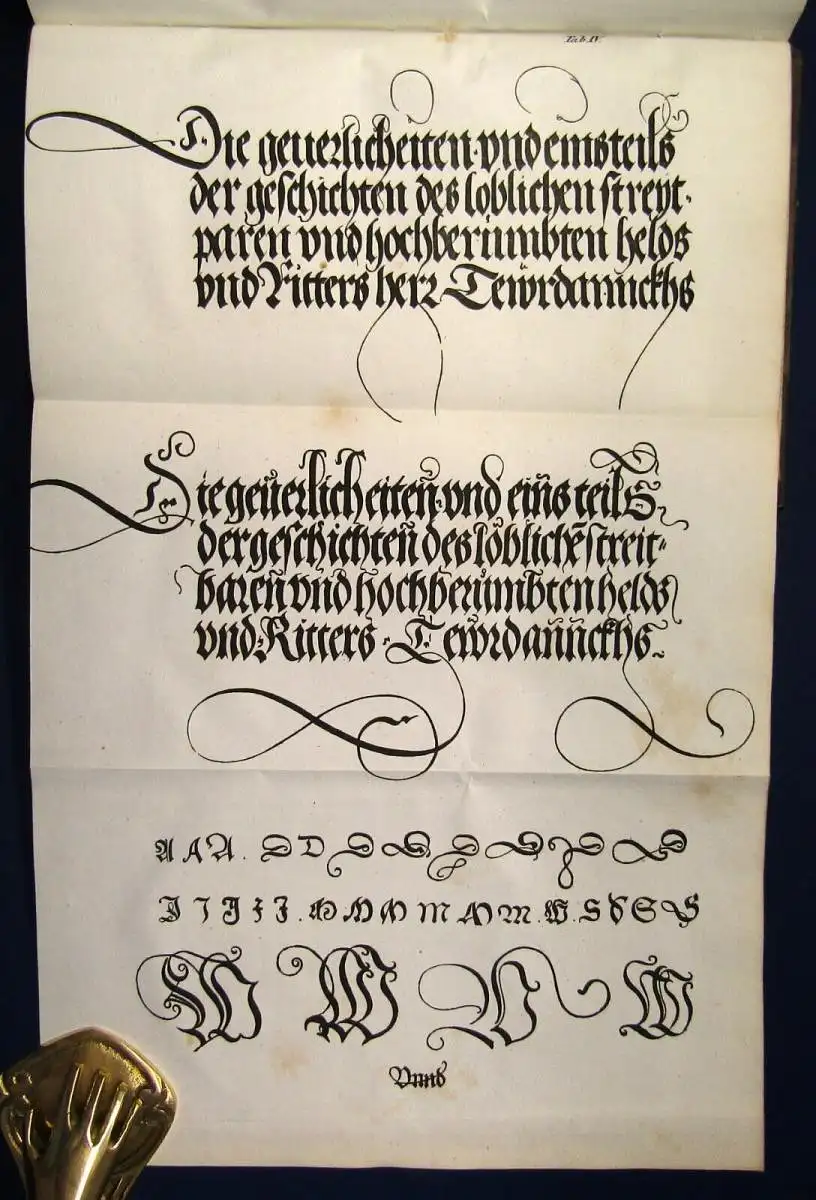 Tab. IV.
Die geuerlicheiten vnd einsteils
der geschichten des loblichen streyt-
paren vnd hochberümbten helds
vnd Ritters herr Tewrdannckhs
Die geüerlicheiten vnd eins teils
der geschichten des löblichē streit-
baren vnd hochberümbten helds
vnd Ritters Tewrdannckhs
A A A. D D D D D D D D
J J J J J. M M M M M M. W. S S S S
W W W W
Vnnd